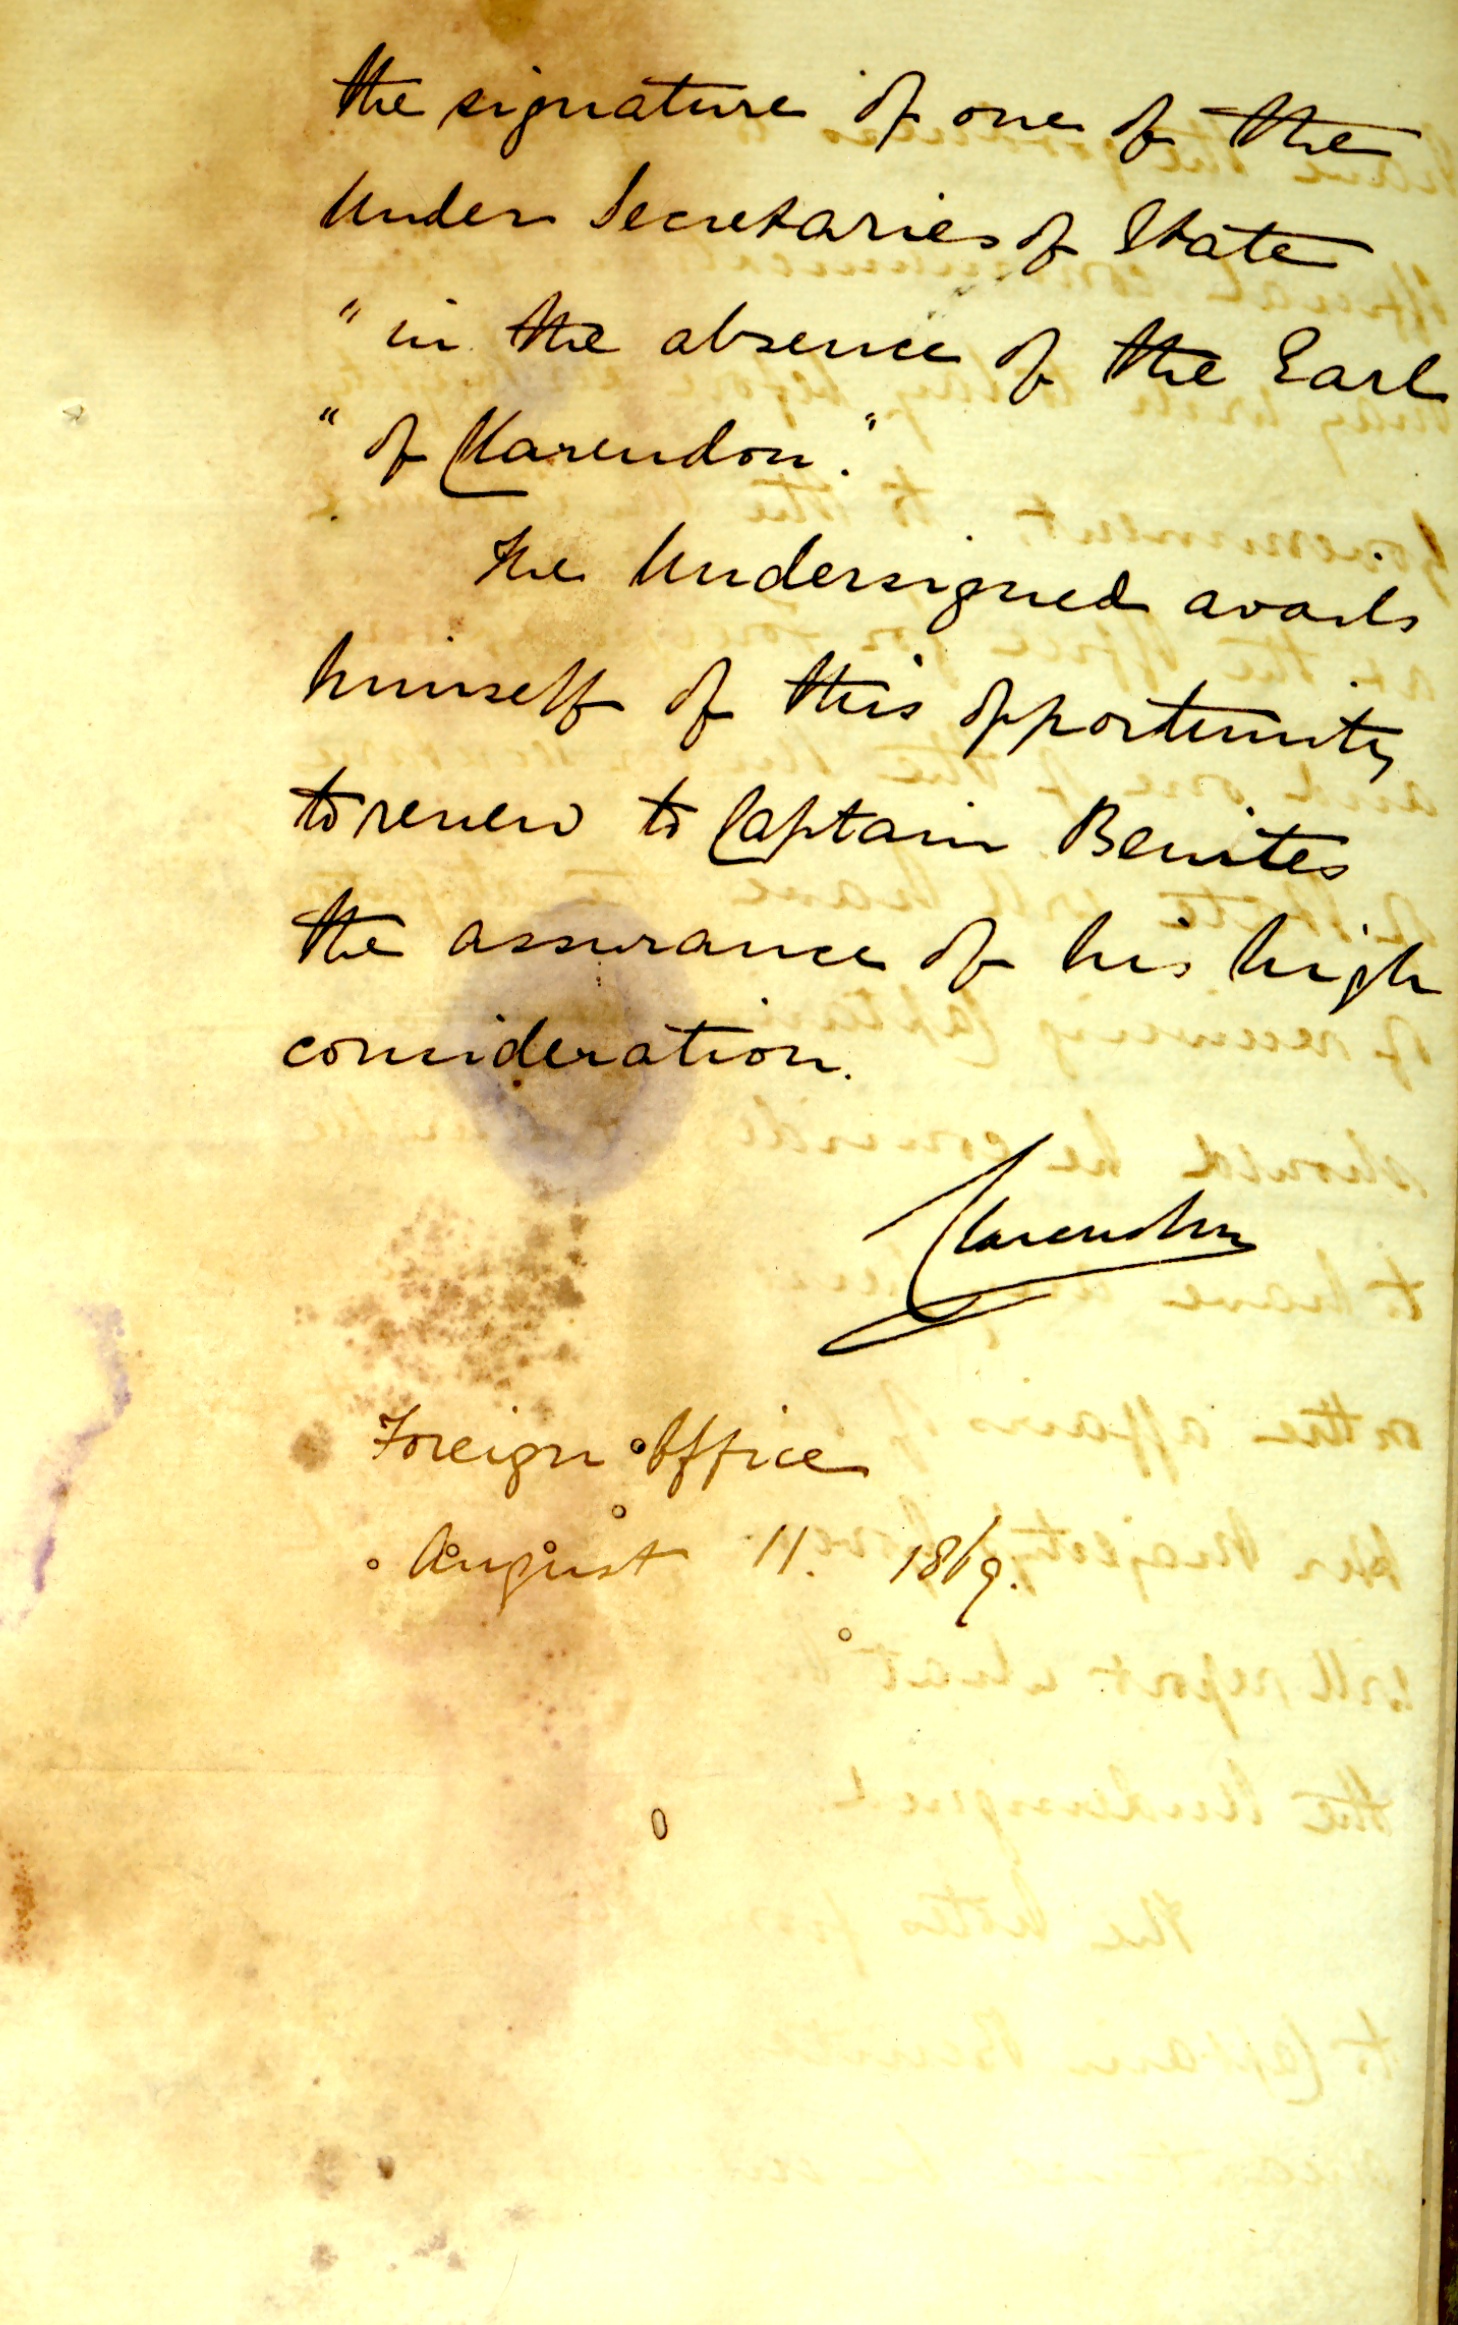 the signature of one of the
Under Secretaries of State
" in the absence of the Earl
" of Clarendon."
The Undersigned avails
himself of this opportunity
to renew to Captain Benites
the assurance of his high
consideration.
Clarendon
Foreign Office
August 11. 1869.